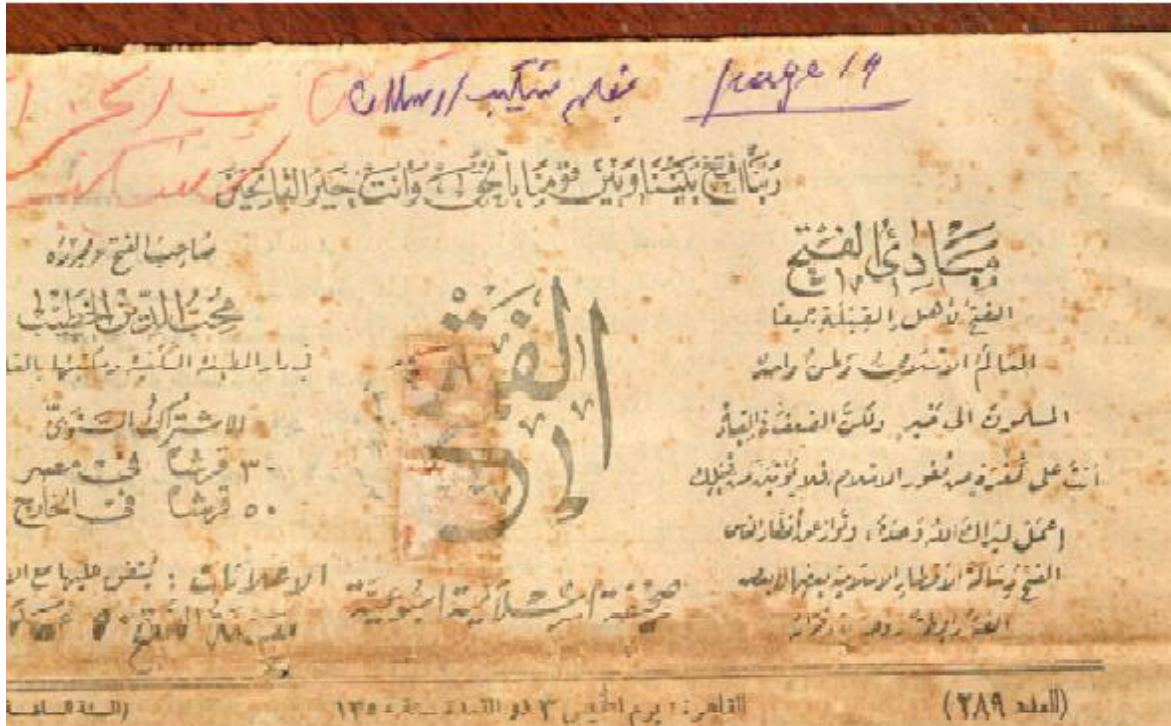 بقلم شكيب ارسلان page 19
ربنا افتح بيننا وبين قومنا بالحق وأنت خير الفاتحين
مبادئ الفتح
الفتح لأهل القبلة جميعًا
العالم الاسلامي وطن واحد
المسلمون الى خير ولكن الضعف في القيادة
أنت على ثغرة من ثغور الاسلام فلا يؤتين من قبلك
اعمل ليراك الله وحده، وتوار عن أنظار الناس
الفتح رسالة الأقطار الاسلامية بعضها لبعض
الفتح
صحيفة اسلامية أسبوعية
صاحب الفتح ومحرره
محب الدين الخطيب
في دار المطبعة السلفية ومكتبتها
الاشتراك السنوي
٣٠ قرشًا في مصر
٥٠ قرشًا في الخارج
الاعلانات : يتفق عليها مع
(العدد ٢٨٩)
القاهرة : يوم الخميس ٣ ذو القعدة سنة ١٣٥٠